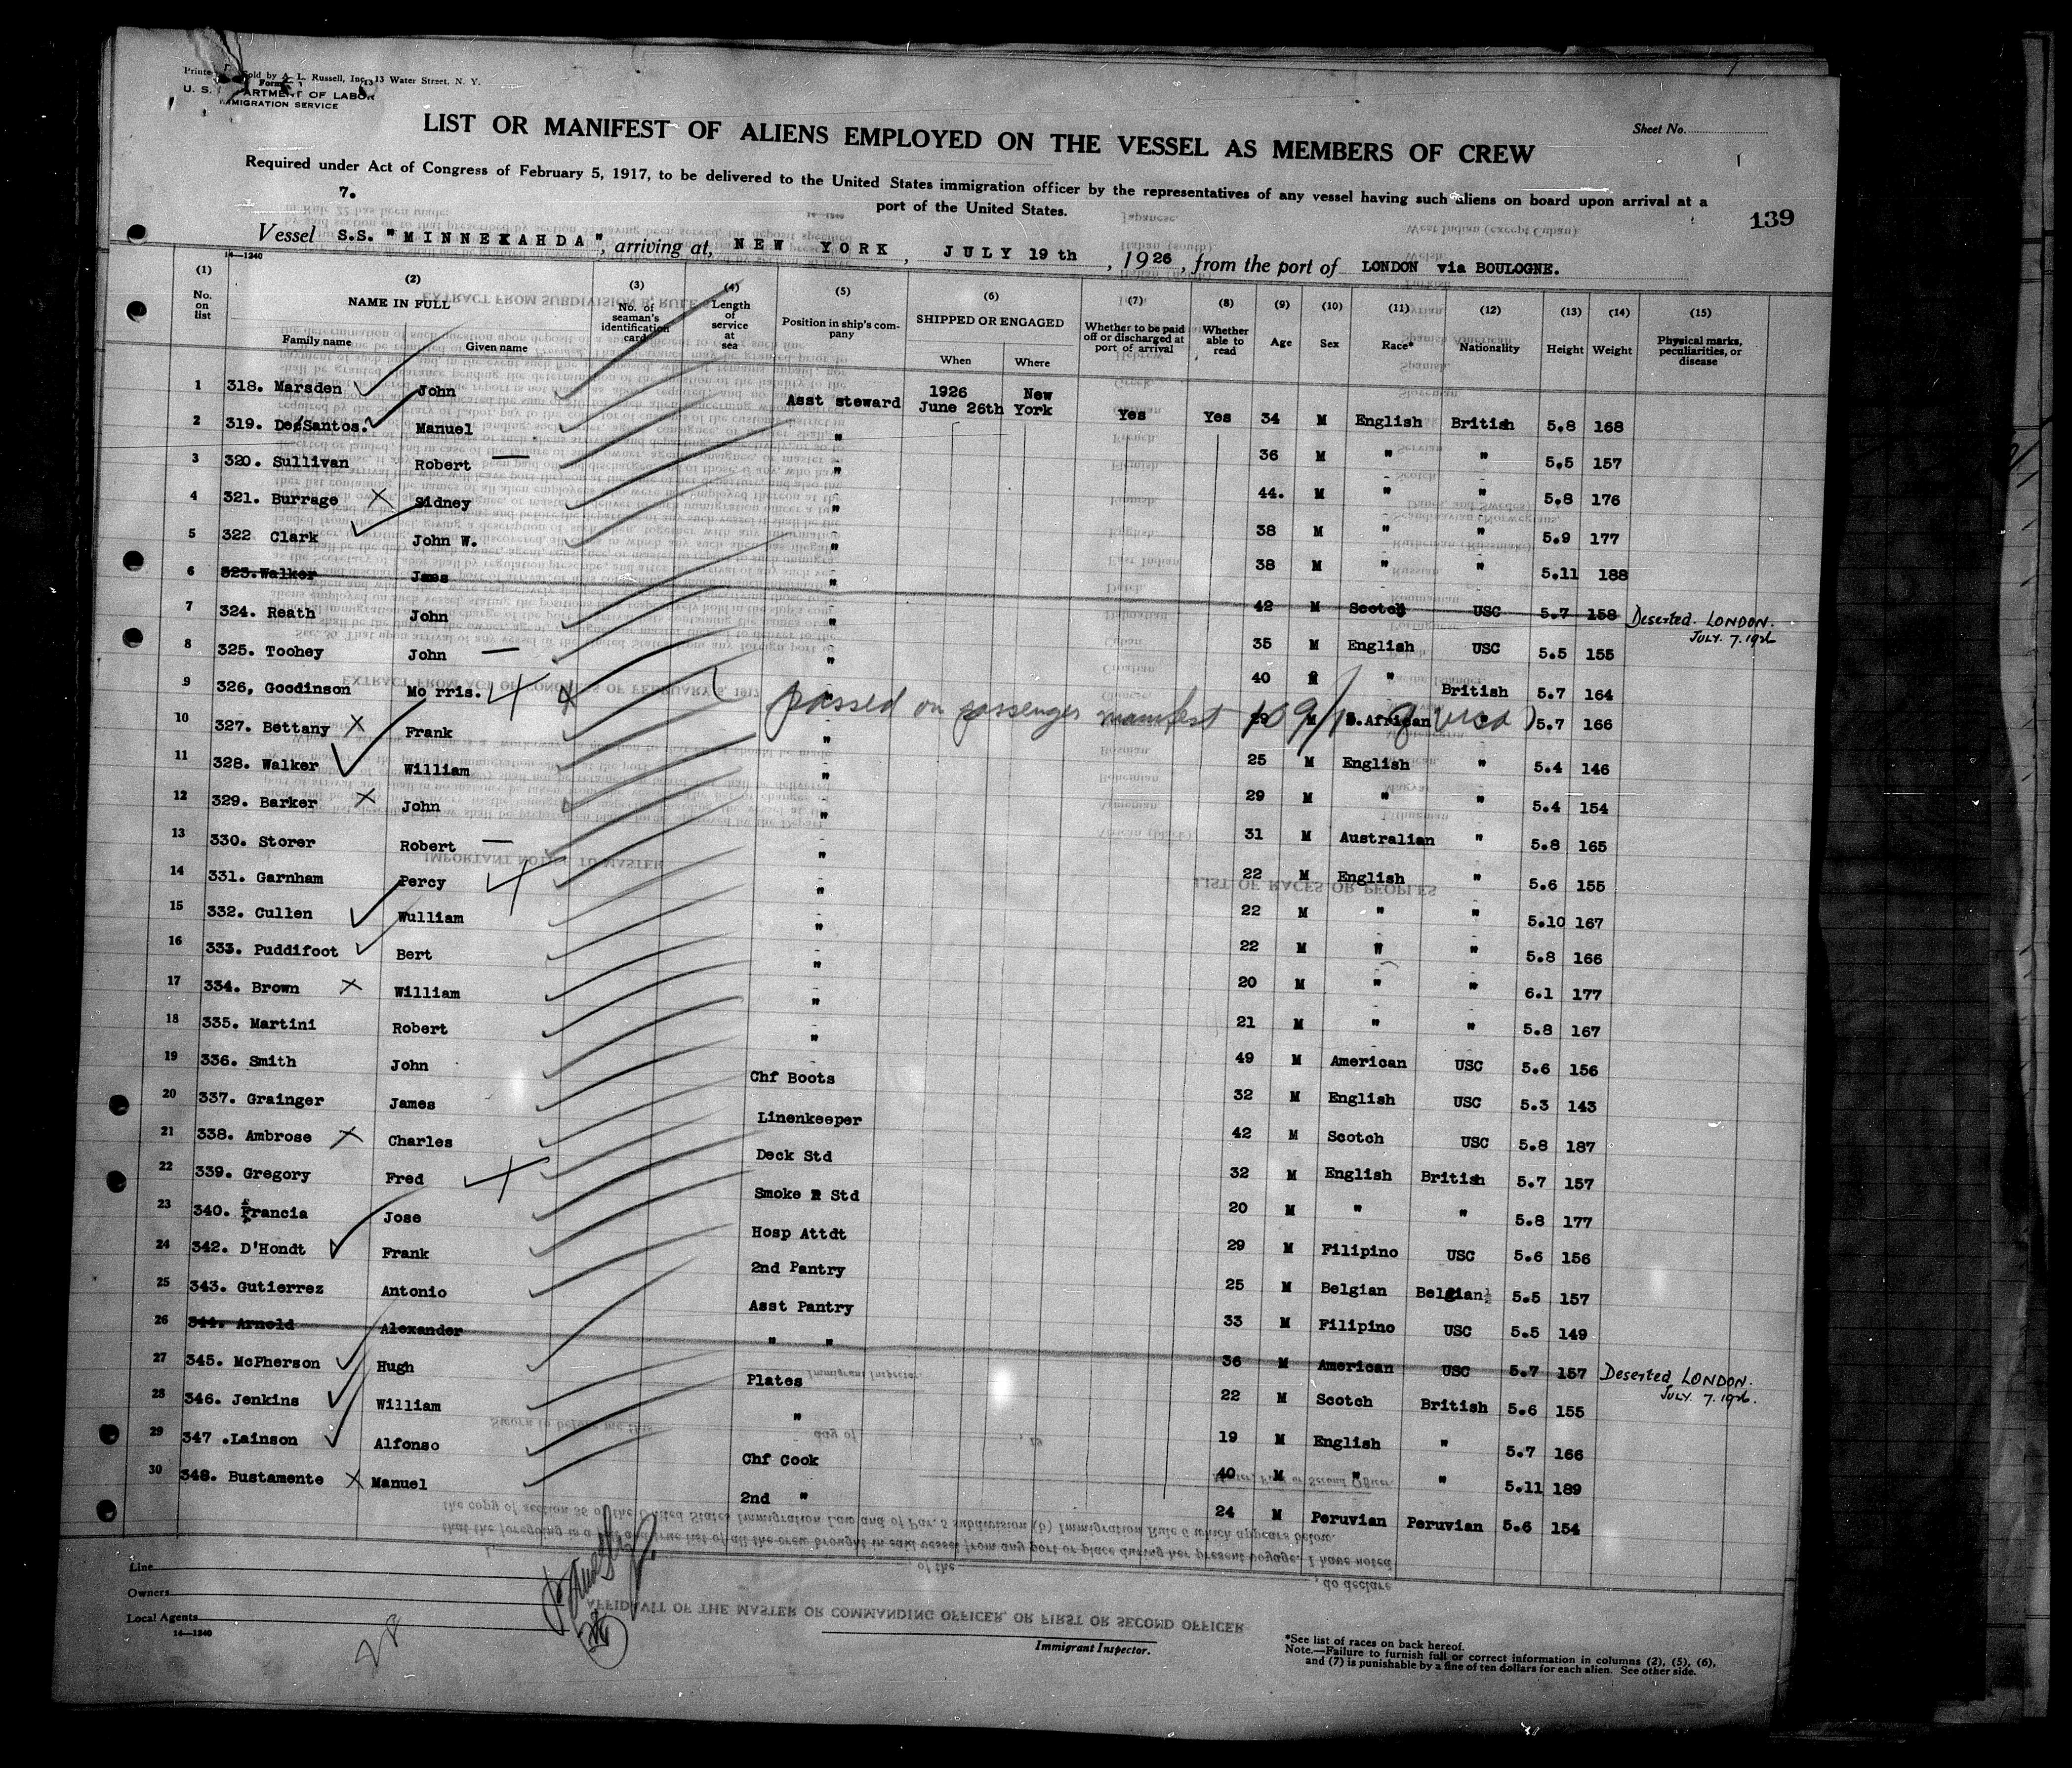 Sold by A. L. Russell, Inc. 13 Water Street, N. Y.
Form
U. S. DEPARTMENT OF LABOR
IMMIGRATION SERVICE
Sheet No.
LIST OR MANIFEST OF ALIENS EMPLOYED ON THE VESSEL AS MEMBERS OF CREW
Required under Act of Congress of February 5, 1917, to be delivered to the United States immigration officer by the representatives of any vessel having such aliens on board upon arrival at a
port of the United States.
7.
139
Vessel S.S. "MINNEKAHDA", arriving at, NEW YORK, JULY 19th, 1926, from the port of LONDON via BOULOGNE.
14—1240
(1) No. on list (2) NAME IN FULL Family name Given name (3) No. of seaman's identification card (4) Length of service at sea (5) Position in ship's company (6) SHIPPED OR ENGAGED When Where (7) Whether to be paid off or discharged at port of arrival (8) Whether able to read (9) Age (10) Sex (11) Race* (12) Nationality (13) Height (14) Weight (15) Physical marks, peculiarities, or disease
1 318. Marsden John Asst steward 1926 June 26th New York Yes Yes 34 M English British 5.8 168
2 319. DeSantos. Manuel " 36 M " " 5.5 157
3 320. Sullivan Robert " 44. M " " 5.8 176
4 321. Burrage Sidney " 38 M " " 5.9 177
5 322 Clark John W. " 38 M " " 5.11 188
6 323. Walker Jmes " 42 M Scotch USC 5.7 158 Deserted LONDON. JULY. 7. 1926
7 324. Reath John " 35 M English USC 5.5 155
8 325. Toohey John " 40 M " British 5.7 164
9 326, Goodinson Mo rris. " 29 M S.African " 5.7 166
passed on passenger manifest visa)
10 327. Bettany Frank " 25 M English " 5.4 146
11 328. Walker William " 29 M " " 5.4 154
12 329. Barker John " 31 M Australian " 5.8 165
13 330. Storer Robert " 22 M English " 5.6 155
14 331. Garnham Percy " 22 M " " 5.10 167
15 332. Cullen Wulliam " 22 M " " 5.8 166
16 333. Puddifoot Bert " 20 M " " 6.1 177
17 334. Brown William " 21 M " " 5.8 167
18 335. Martini Robert " 49 M American USC 5.6 156
19 336. Smith John Chf Boots 32 M English USC 5.3 143
20 337. Grainger James Linenkeeper 42 M Scotch USC 5.8 187
21 338. Ambrose Charles Deck Std 32 M English British 5.7 157
22 339. Gregory Fred Smoke R Std 20 M " " 5.8 177
23 340. Francia Jose Hosp Attdt 29 M Filipino USC 5.6 156
24 342. D'Hondt Frank 2nd Pantry 25 M Belgian Belgian 5.5 157
25 343. Gutierrez Antonio Asst Pantry 33 M Filipino USC 5.5 149
26 344. Arnold Alexander " " 36 M American USC 5.7 157 Deserted LONDON. JULY. 7. 1926.
27 345. McPherson Hugh Plates 22 M Scotch British 5.6 155
28 346. Jenkins William " 19 M English " 5.7 166
29 347 .Lainson Alfonso Chf Cook 40 M " " 5.11 189
30 348. Bustamente Manuel 2nd " 24 M Peruvian Peruvian 5.6 154
Line
Owners
Local Agents
14—1240
28
Immigrant Inspector.
*See list of races on back hereof.
Note.—Failure to furnish full or correct information in columns (2), (5), (6),
and (7) is punishable by a fine of ten dollars for each alien. See other side.